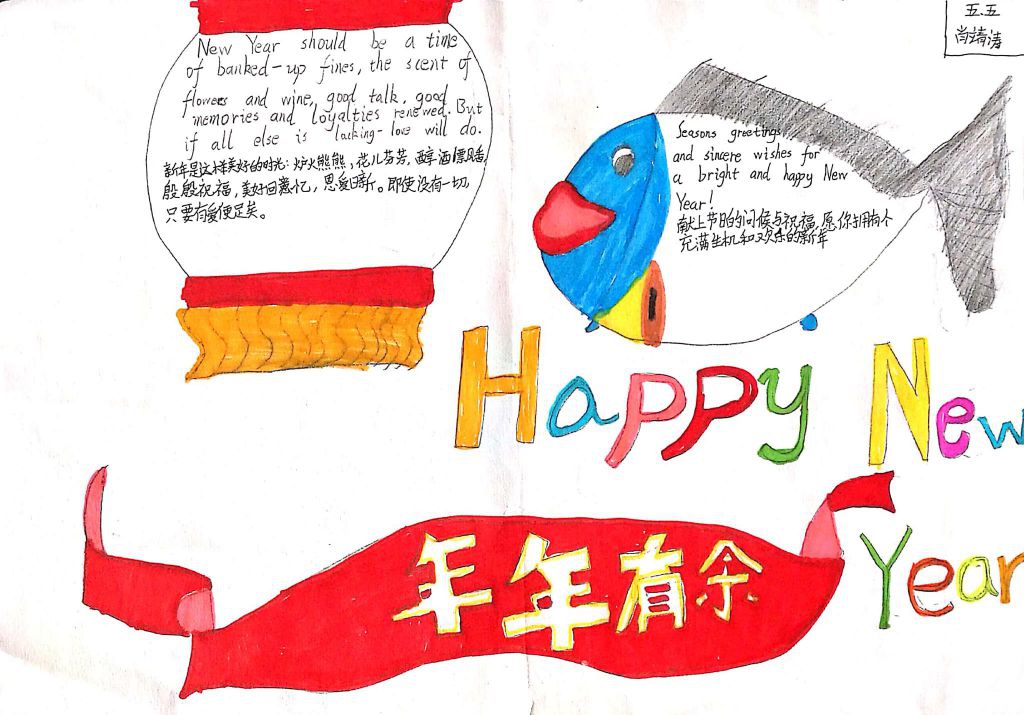 New Year should be a time
of banked-up fines, the scent of
flowers and wine, good talk, good
memories and loyalties renewed. But
if all else is lacking-love will do.
新年是这样美好的时光：炉火熊熊，花儿芬芳，醇酒飘香，
殷殷祝福，美好回忆，恩爱日新。即使没有一切，
只要有爱便足矣。
五.五
尚靖涛
Seasons greetings
and sincere wishes for
a bright and happy New
Year!
献上节日的问候与祝福，愿你拥有个
充满生机和欢乐的新年
Happy New
Year
年年有余